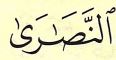 ٱلنَّصَـٰرَىٰ